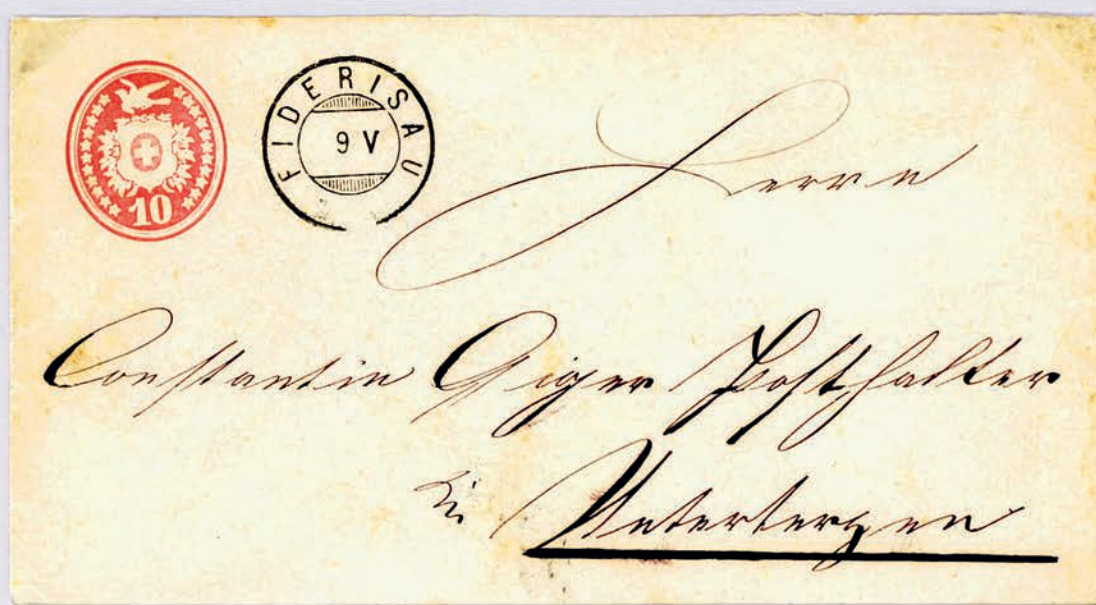 10
FIDERISAU
9 V
Herrn
Constantin Giger Posthalter
in Unterterzen